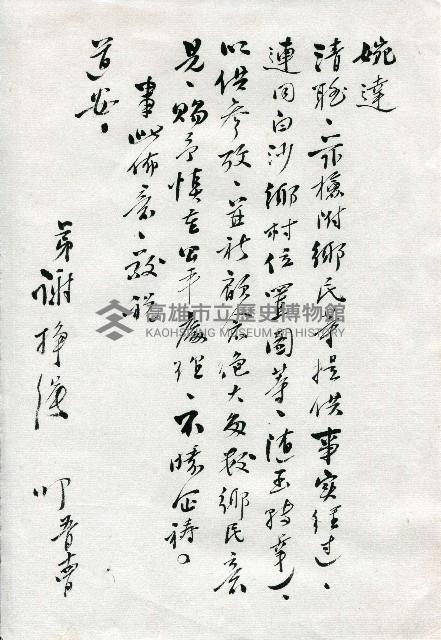 婉達
清聽、亦檢附鄉民等提供事實經過、
連同白沙鄉村位置圖等、隨函轉奉、
以供參攷、並祈顧念絕大多數鄉民意
見、賜予慎重公平處理、不勝企禱。
專此佈意、敬祝
道安、
弟 謝掙強
叩
高雄市立歷史博物館
KAOHSIUNG MUSEUM OF HISTORY